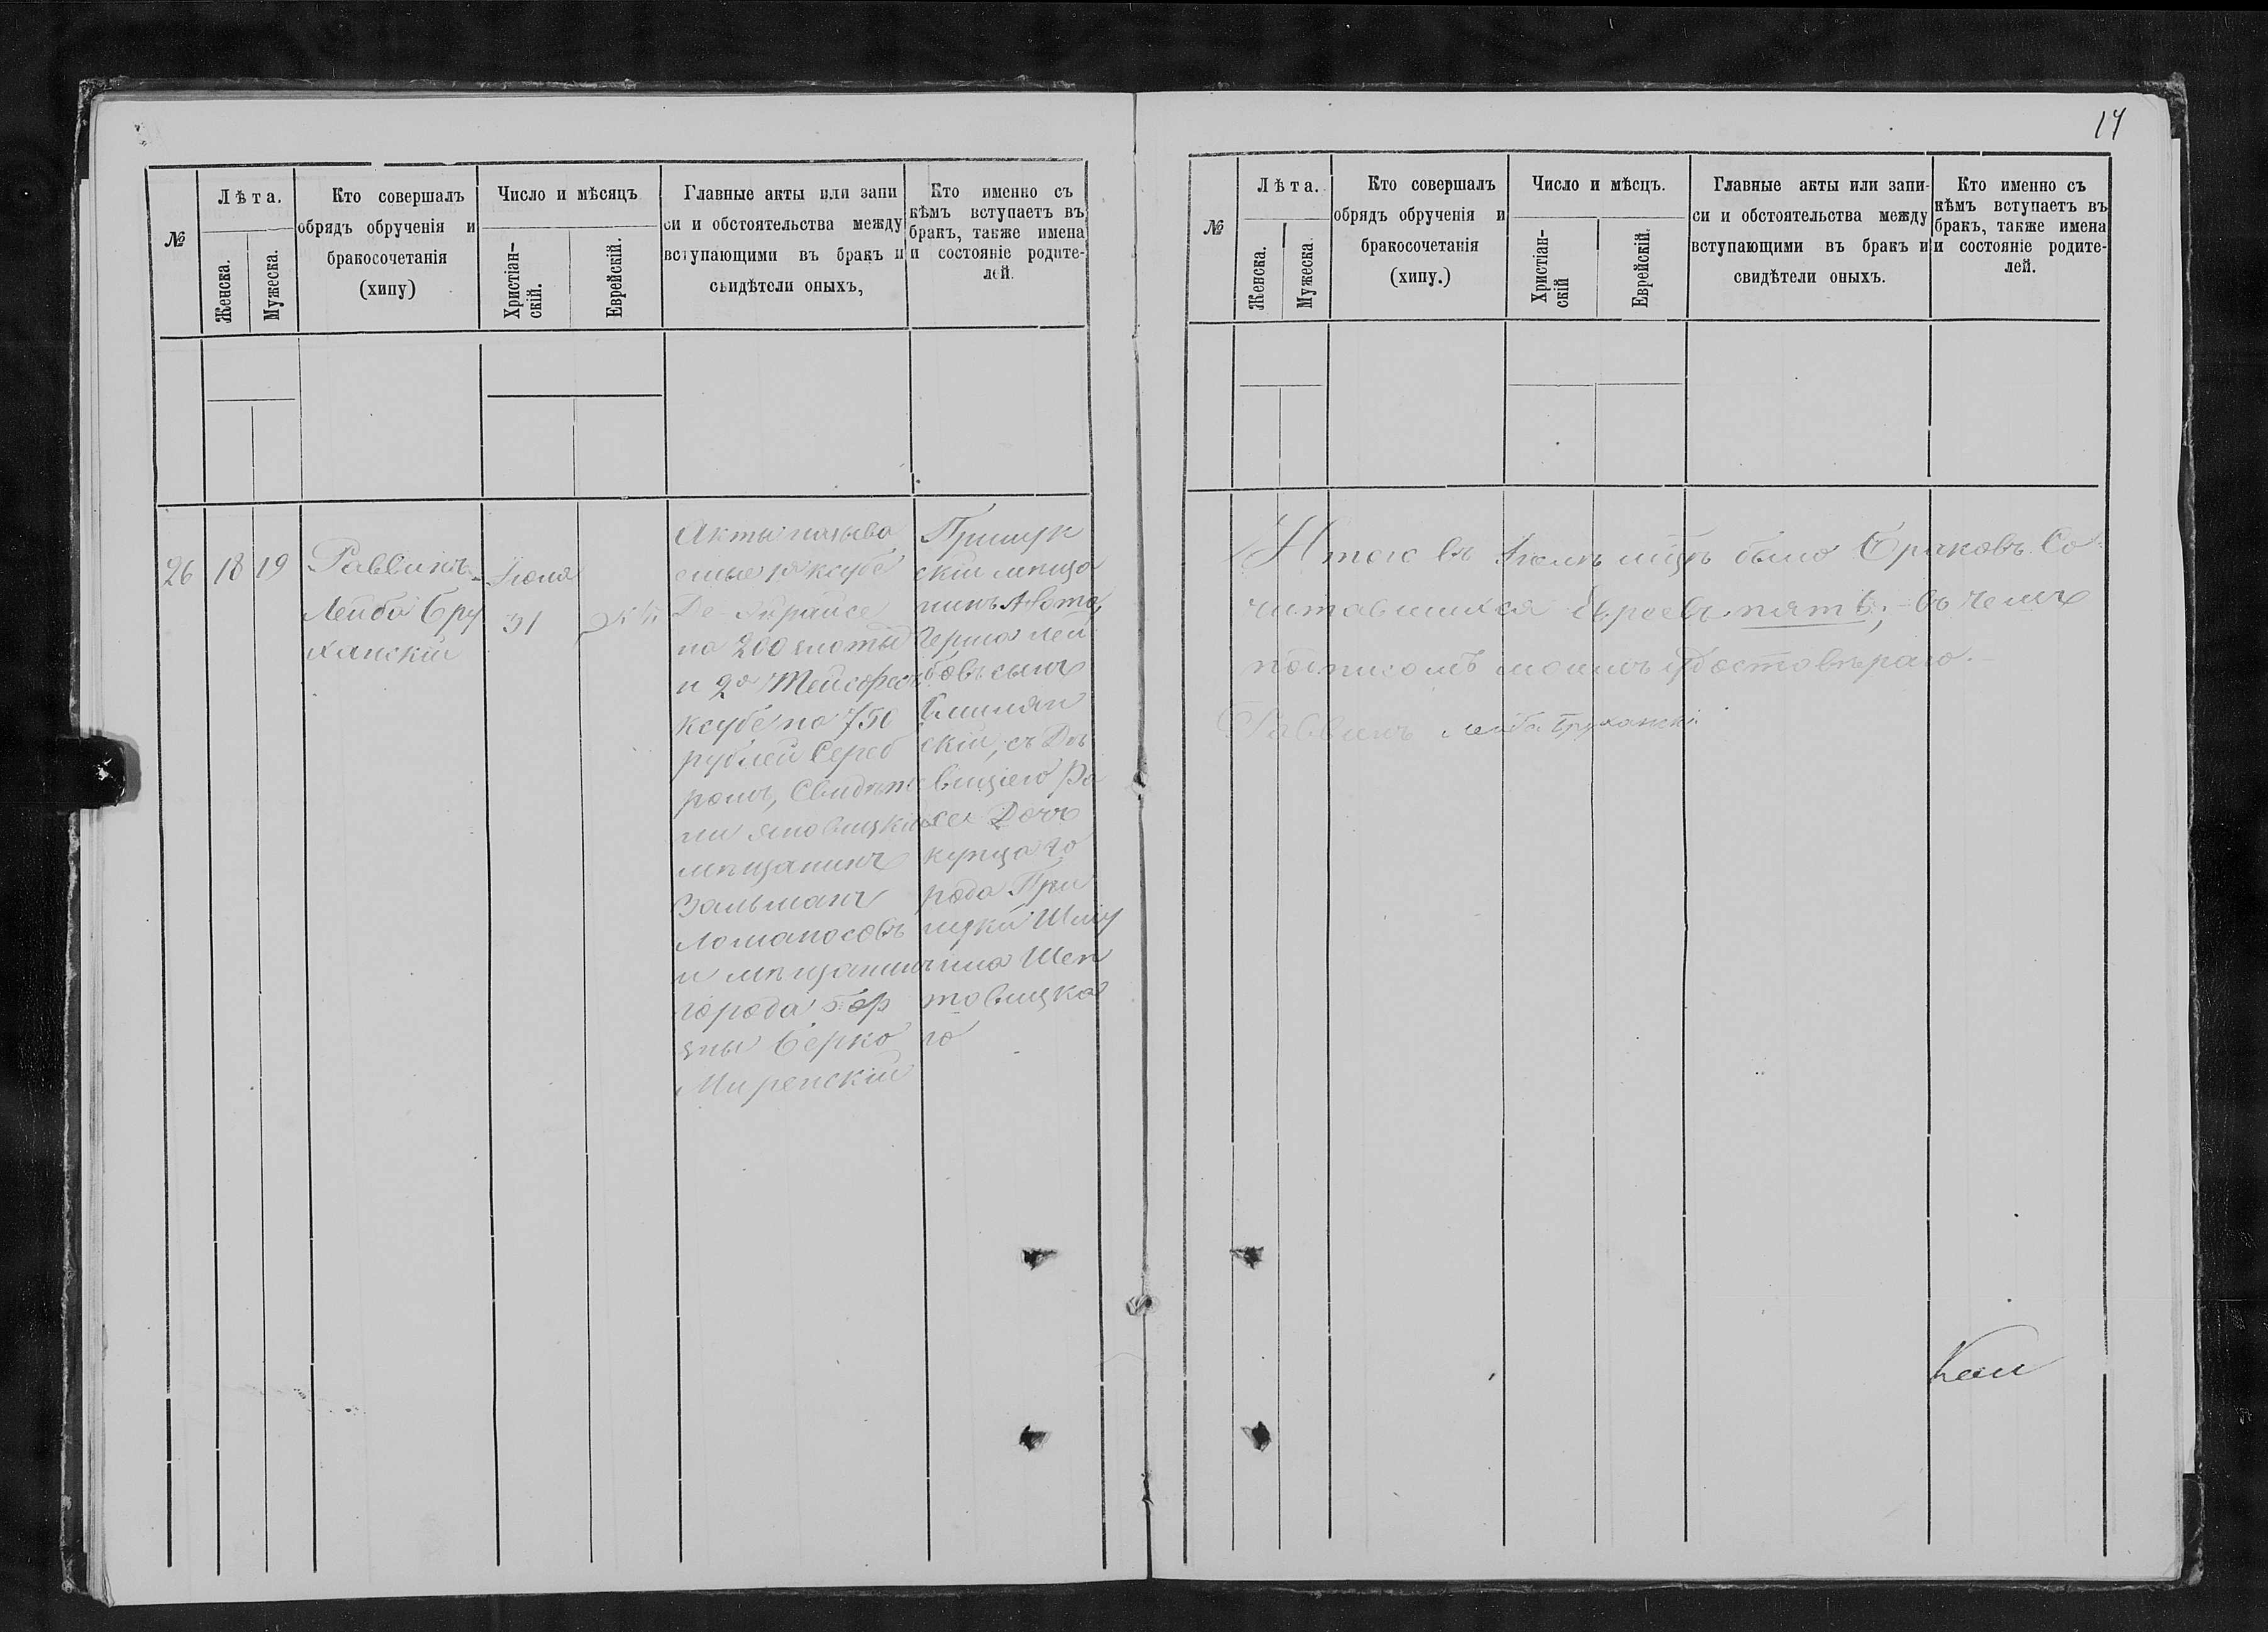 14
№
Лѣта.
Женска.
Мужеска.
Кто совершалъ
обрядъ обрученія и
бракосочетанія
(хипу)
Число и мѣсяцъ
Христіан-
скій.
Еврейскій.
Главные акты или запи
си и обстоятельства между
вступающими въ бракъ и
свидѣтели оныхъ,
Кто именно съ
кѣмъ вступаетъ въ
бракъ, также имена
и состояніе родите-
лей.
26
18
19
Раввинъ
Лейба Бру
ханскій
Іюля
31
Акты называ
емые 1й ксубе
Де-
на 200 злоты
и 2й Тейсфесъ
ксубе на 750
рублей Сереб
ромъ, Свидѣте
ли Яновицкій
мѣщанинъ
Залманъ
Ломаносовъ
и мѣщанинъ
города Бор
зны Берко
Миренскій
Прилук
скій мѣща
нинъ
Герша Лей
бовъ сынъ
скій, съ Дѣ
вицею Ра
хей Дочь
купца го
рода При
луки Шлiу
ма Шеп
товицка
го
№
Лѣта.
Женска.
Мужеска.
Кто совершалъ
обрядъ обрученія и
бракосочетанія
(хипу.)
Число и мѣсцъ.
Христіан-
скій
Еврейскій.
Главные акты или запи-
си и обстоятельства между
вступающими въ бракъ и
свидѣтели оныхъ.
Кто именно съ
кѣмъ вступаетъ въ
бракъ, также имена
и состояніе родите-
лей.
Итого въ Іюлѣ мцѣ было Браковъ Со
читавшихся Евреевъ пять; въ чемъ
подписомъ моимъ удостовѣряю.
Раввинъ Лейба Бруханскій